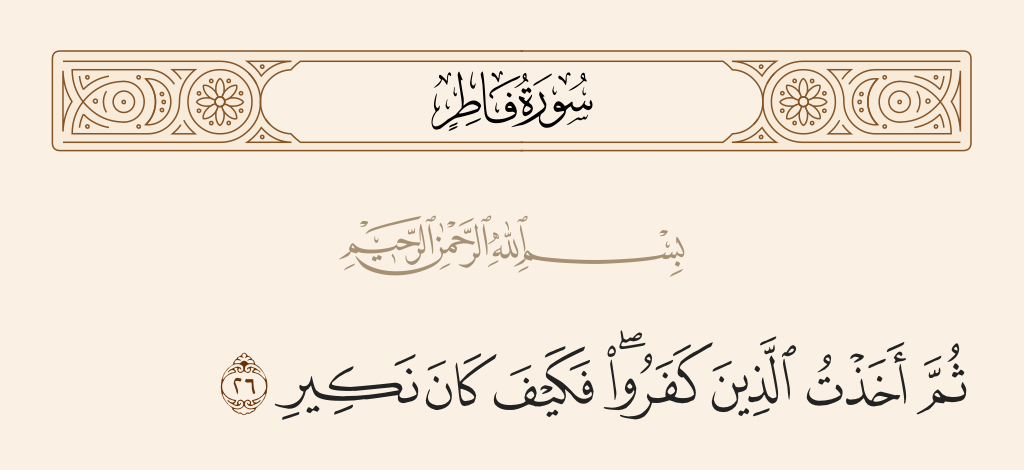 سُورَةُ فَاطِرٍ
بِسْمِ ٱللَّهِ ٱلرَّحْمَٰنِ ٱلرَّحِيمِ
ثُمَّ أَخَذْتُ ٱلَّذِينَ كَفَرُوا۟ ۖ فَكَيْفَ كَانَ نَكِيرِ ٢٦